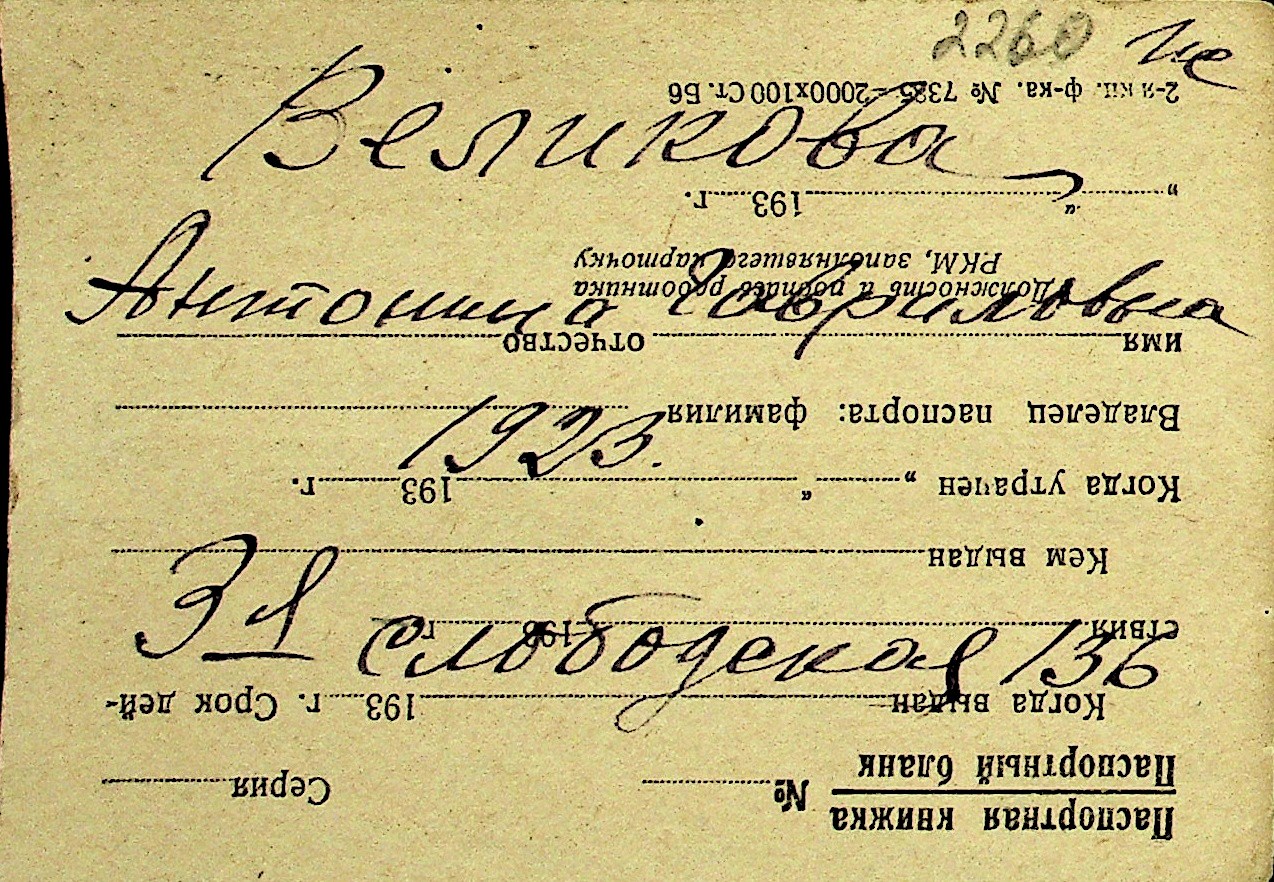 2260 
Великова
Антонина Гавриловна
1923.
3я слободская 136
Паспортная книжка
Паспортный бланк
№ Серия
Когда выдан 193 г. Срок дей-
ствия 193 г.
Кем выдан
Когда утрачен „ “ 193 г.
Владелец паспорта: фамилия
имя отчество
Должность и подпись работника
РКМ, заполнявшего карточку
„ “ 193 г.
2-я кп. ф-ка. № 7385 – 2000х100 Ст. Б6